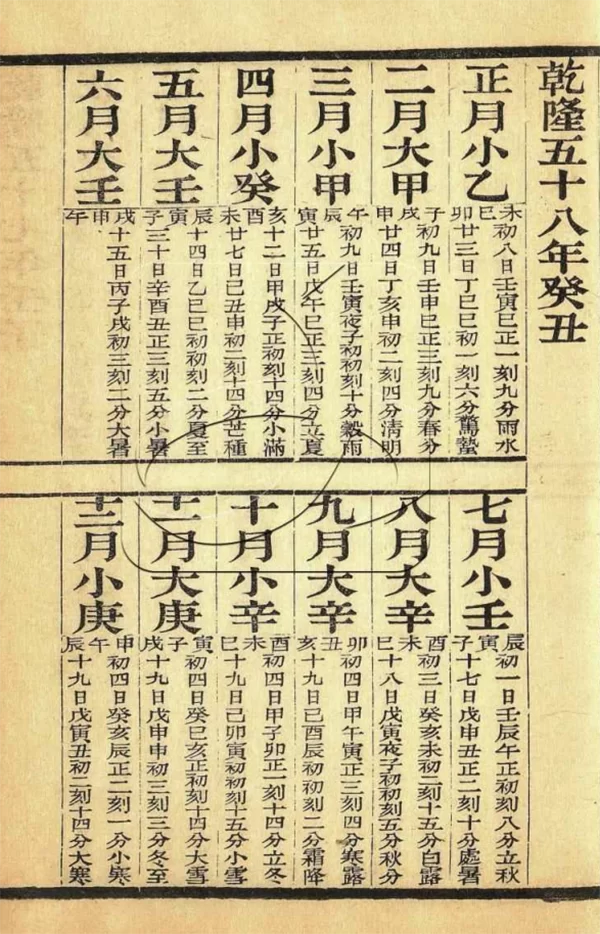 乾隆五十八年癸丑
正月小乙
未巳卯
初八日壬寅巳正一刻九分雨水
廿三日丁巳巳初一刻六分驚蟄
二月大甲
子戌申
初九日壬申巳正三刻九分春分
廿四日丁亥申初二刻四分清明
三月小甲
午辰寅
初九日壬寅夜子初初刻十分穀雨
廿五日戊午巳正三刻四分立夏
四月小癸
亥酉未
十二日甲戌子正初刻十四分小滿
廿七日己丑申初二刻十四分芒種
五月大壬
辰寅子
十四日乙巳巳初初刻二分夏至
三十日辛酉丑正三刻五分小暑
六月大壬
戌申午
十五日丙子戌初三刻二分大暑
七月小壬
辰寅子
初一日壬辰午正初刻八分立秋
十七日戊申丑正二刻十分處暑
八月大辛
酉未巳
初三日癸亥未初二刻十五分白露
十八日戊寅夜子初初刻五分秋分
九月大辛
卯丑亥
初四日甲午寅正三刻四分寒露
十九日己酉辰初初刻二分霜降
十月小辛
酉未巳
初四日甲子卯正一刻十四分立冬
十九日己卯寅初初刻十五分小雪
十一月大庚
寅子戌
初四日癸巳亥正初刻十四分大雪
十九日戊申申初三刻三分冬至
十二月小庚
申午辰
初四日癸亥辰正二刻一分小寒
十九日戊寅丑初二刻十四分大寒